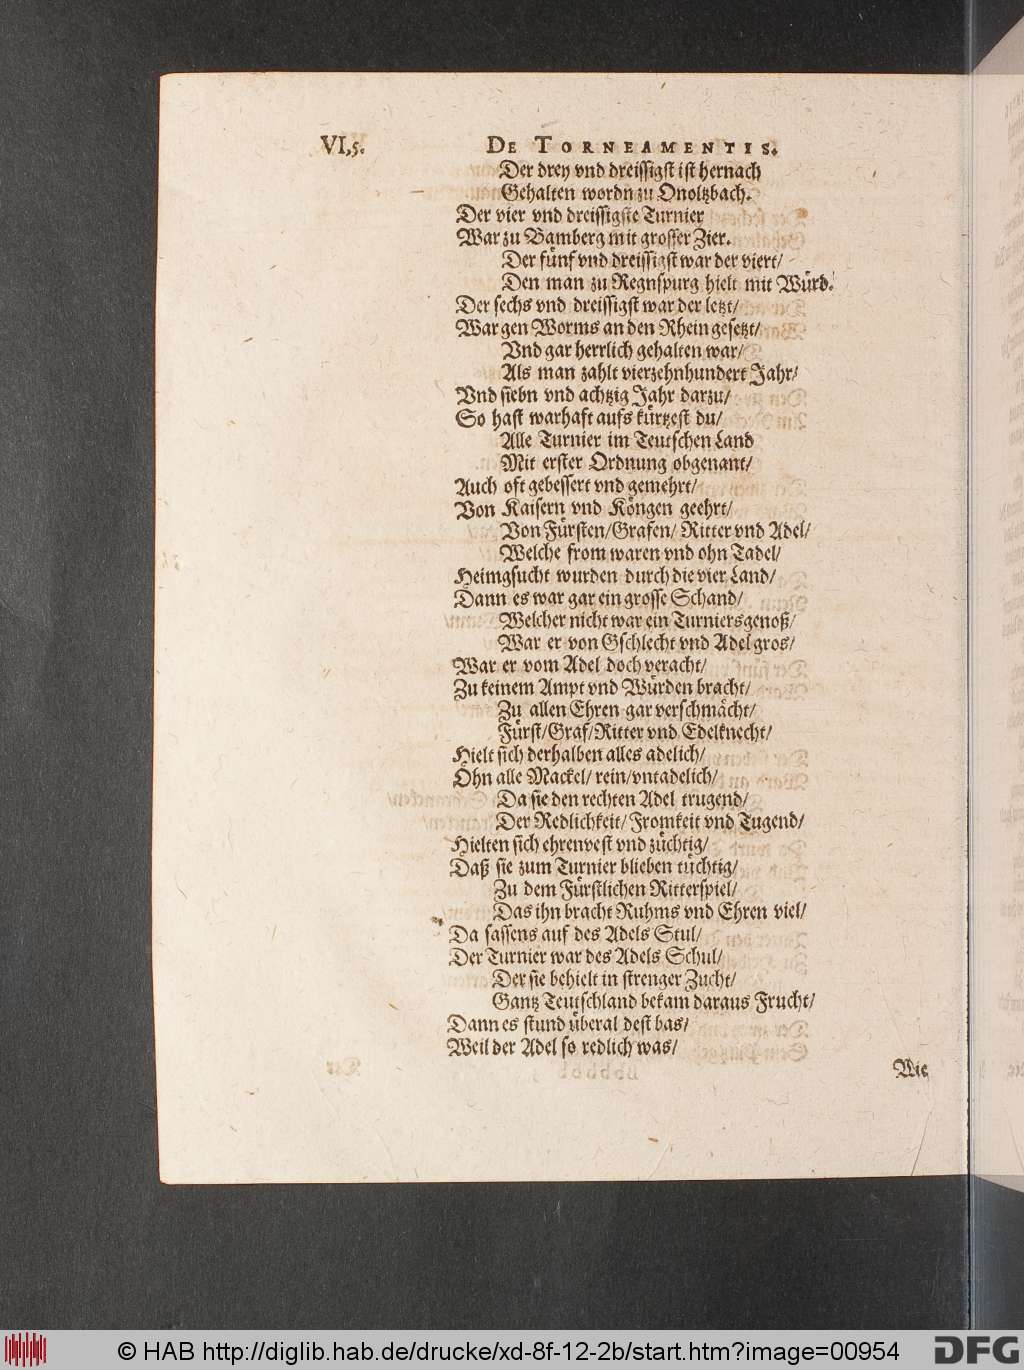 VI,5. DE TORNEAMENTIS.
Der drey vnd dreissigst ist hernach
Gehalten wordn zu Onoltzbach.
Der vier vnd dreissigste Turnier
War zu Bamberg mit grosser Zier.
Der fünf vnd dreissigst war der viert/
Den man zu Regnspurg hielt mit Würd.
Der sechs vnd dreissigst war der letzt/
War gen Worms an den Rhein gesetzt/
Vnd gar herrlich gehalten war/
Als man zahlt vierzehnhundert Jahr/
Vnd siebn vnd achtzig Jahr darzu/
So hast warhaft aufs kürtzest du/
Alle Turnier im Teutschen Land
Mit erster Ordnung obgenant/
Auch oft gebessert vnd gemehrt/
Von Kaisern vnd Köngen geehrt/
Von Fürsten/Grafen/ Ritter vnd Adel/
Welche from waren vnd ohn Tadel/
Heimgsucht wurden durch die vier Land/
Dann es war gar ein grosse Schand/
Welcher nicht war ein Turniersgenoß/
War er von Gschlecht vnd Adel gros/
War er vom Adel doch veracht/
Zu keinem Ampt vnd Würden bracht/
Zu allen Ehren gar verschmächt/
Fürst/Graf/Ritter vnd Edelknecht/
Hielt sich derhalben alles adelich/
Ohn alle Mackel/ rein/vntadelich/
Da sie den rechten Adel trugend/
Der Redlichkeit/ Fromkeit vnd Tugend/
Hielten sich ehrenvest vnd züchtig/
Daß sie zum Turnier blieben tüchtig/
Zu dem Fürstlichen Ritterspiel/
Das ihn bracht Ruhms vnd Ehren viel/
Da sassens auf des Adels Stul/
Der Turnier war des Adels Schul/
Der sie behielt in strenger Zucht/
Gantz Teutschland bekam daraus Frucht/
Dann es stund überal dest bas/
Weil der Adel so redlich was/
Wie
© HAB http://diglib.hab.de/drucke/xd-8f-12-2b/start.htm?image=00954
DFG